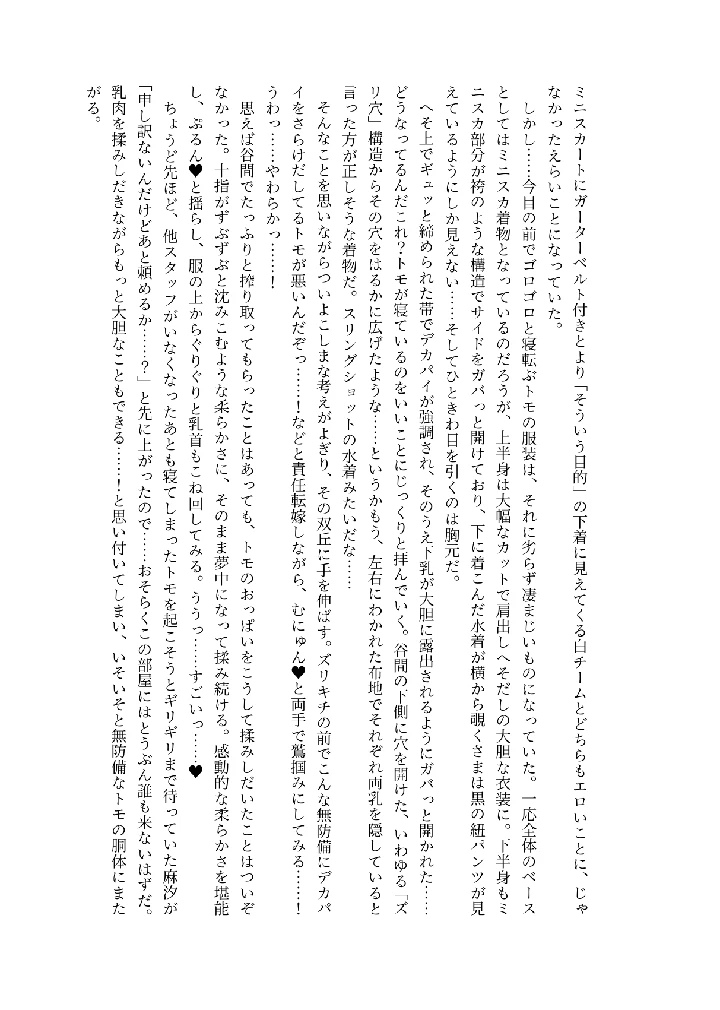 ミニスカートにガーターベルト付きとより「そういう目的」の下着に見えてくる白チームとどちらもエロいことに、じゃ
なかったえらいことになっていた。
しかし……今目の前でゴロゴロと寝転ぶトモの服装は、それに劣らず凄まじいものになっていた。一応全体のベース
としてはミニスカ着物となっているのだろうが、上半身は大幅なカットで肩出しへそだしの大胆な衣装に。下半身もミ
ニスカ部分が袴のような構造でサイドをガバっと開けており、下に着こんだ水着が横から覗くさまは黒の紐パンツが見
えているようにしか見えない……そしてひときわ目を引くのは胸元だ。
へそ上でギュッと締められた帯でデカパイが強調され、そのうえ下乳が大胆に露出されるようにガバっと開かれた……
どうなってるんだこれ？トモが寝ているのをいいことにじっくりと拝んでいく。谷間の下側に穴を開けた、いわゆる「ズ
リ穴」構造からその穴をはるかに広げたような……というかもう、左右にわかれた布地でそれぞれ両乳を隠していると
言った方が正しそうな着物だ。スリングショットの水着みたいだな……
そんなことを思いながらついよこしまな考えがよぎり、その双丘に手を伸ばす。ズリキチの前でこんな無防備にデカパ
イをさらけだしてるトモが悪いんだぞっ……！などと責任転嫁しながら、むにゅん♥と両手で鷲掴みにしてみる……！
うわっ……やわらかっ……！
思えば谷間でたっぷりと搾り取ってもらったことはあっても、トモのおっぱいをこうして揉みしだいたことはついぞ
なかった。十指がずぶずぶと沈みこむような柔らかさに、そのまま夢中になって揉み続ける。感動的な柔らかさを堪能
し、ぷるん♥と揺らし、服の上からぐりぐりと乳首もこね回してみる。ううっ……すごいっ……♥
ちょうど先ほど、他スタッフがいなくなったあとも寝てしまったトモを起こそうとギリギリまで待っていた麻汐が
「申し訳ないんだけどあと頼めるか……？」と先に上がったので……おそらくこの部屋にはとうぶん誰も来ないはずだ。
乳肉を揉みしだきながらもっと大胆なこともできる……！と思い付いてしまい、いそいそと無防備なトモの胴体にまた
がる。